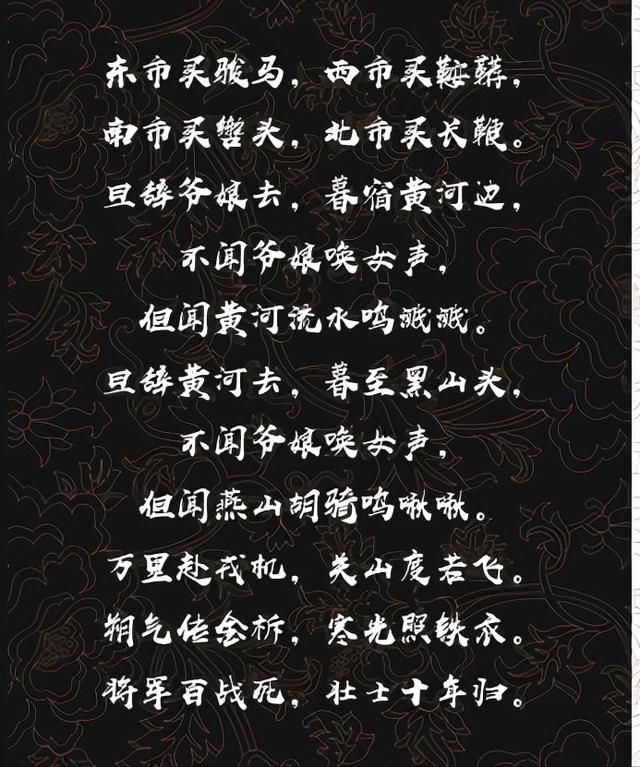 东市买骏马，西市买鞍鞯，
南市买辔头，北市买长鞭。
旦辞爷娘去，暮宿黄河边，
不闻爷娘唤女声，
但闻黄河流水鸣溅溅。
旦辞黄河去，暮至黑山头，
不闻爷娘唤女声，
但闻燕山胡骑鸣啾啾。
万里赴戎机，关山度若飞。
朔气传金柝，寒光照铁衣。
将军百战死，壮士十年归。